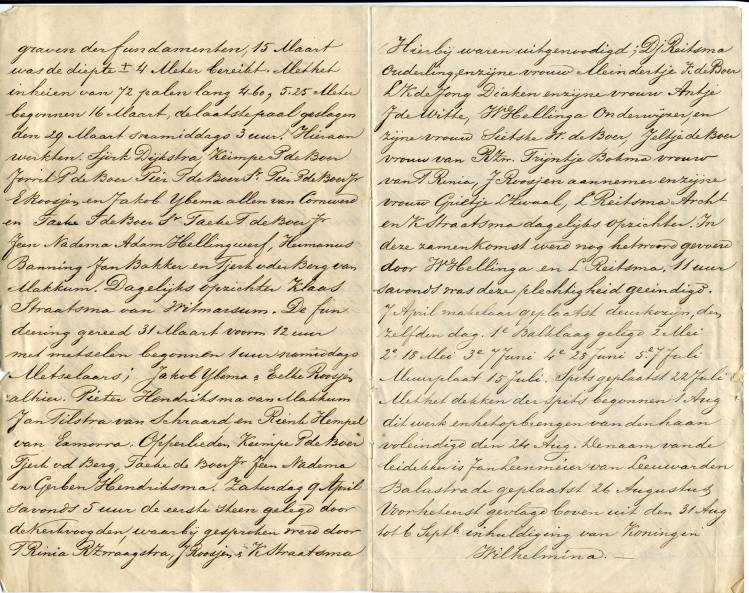 graven der fundamenten, 15 Maart
was de diepte ± 4 Meter bereikt. Met het
inheien van 72 palen lang 4.60, 5.25 Meter
begonnen 16 Maart, de laatste paal geslagen
den 29 Maart snamiddags 3 uur. Hieraan
werkten. Sjerk Dijkstra, Keimpe P de Boer
Jorrit P de Boer Pier P de Boer Sr. Pier P de Boer Jr
E Roosjen en Jakob Ybema allen van Cornwerd
en Taeke T de Boer Sr Taeke T de Boer Jr
Jeen Nadema Adam Hellingwerf, Humanus
Banning Jan Bakker en Tjerk v der Berg van
Makkum. Dagelijks opzichter Klaas
Straatsma van Witmarsum. De fun
deering gereed 31 Maart voorm 12 uur
met metselen begonnen 1 uur namiddags
Metselaars; Jakob Ybema & Eelke Roosjen
alhier. Pieter Hendriksma van Makkum
Jan Tilstra van Schraard en Rienk Hempel
van Exmorra. Opperlieden Keimpe P de Boer
Tjerk vd Berg, Taeke de Boer Jr Jeen Nadema
en Gerben Hendriksma. Zaturdag 9 April
savonds 5 uur de eerste steen gelegd door
de kerkvoogden waarbij gesproken werd door
T Rinia R Zwaagstra, J Roosjen & K Straatsma
Hierbij waren uitgenoodigd; Dj Reitsma
Ouderling, en zijne vrouw Meindertje K de Boer
L K de Jong Diaken en zijne vrouw Antje
J de Witte, W Hellinga Onderwijzer, en
zijne vrouw Sietske W. de Boer, Jeltje de Boer
vrouw van R Zw. Trijntje Bokma vrouw
van T Rinia, J Roosjen aannemer en zijne
vrouw Grietje L Zwaal, L Reitsma Archt
en K Straatsma dagelijks opzichter. In
deze zamenkomst werd nog het woord gevoerd
door W Hellinga en L Reitsma. 11 uur
savonds was deze plechtigheid geeindigd.
7 April makelaar geplaatst deurkozijn, den
zelfden dag. 1e Balklaag gelegd 2 Mei
2e 18 Mei 3e 7 Juni 4e 28 Juni 5e 7 Juli
Muurplaat 15 Juli. Spits geplaatst 22 Juli
Met het dekken der Spits begonnen 1 Aug
dit werk en het opbrengen van den haan
voleindigd den 24 Aug. De naam van de
leidekker is Jan Leenmeier van Leeuwarden
Balustrade geplaatst 26 Augustus
Voor het eerst gevlagd boven uit den 31 Aug
tot 6 Septb. inhuldiging van Koningen
Wilhelmina. —